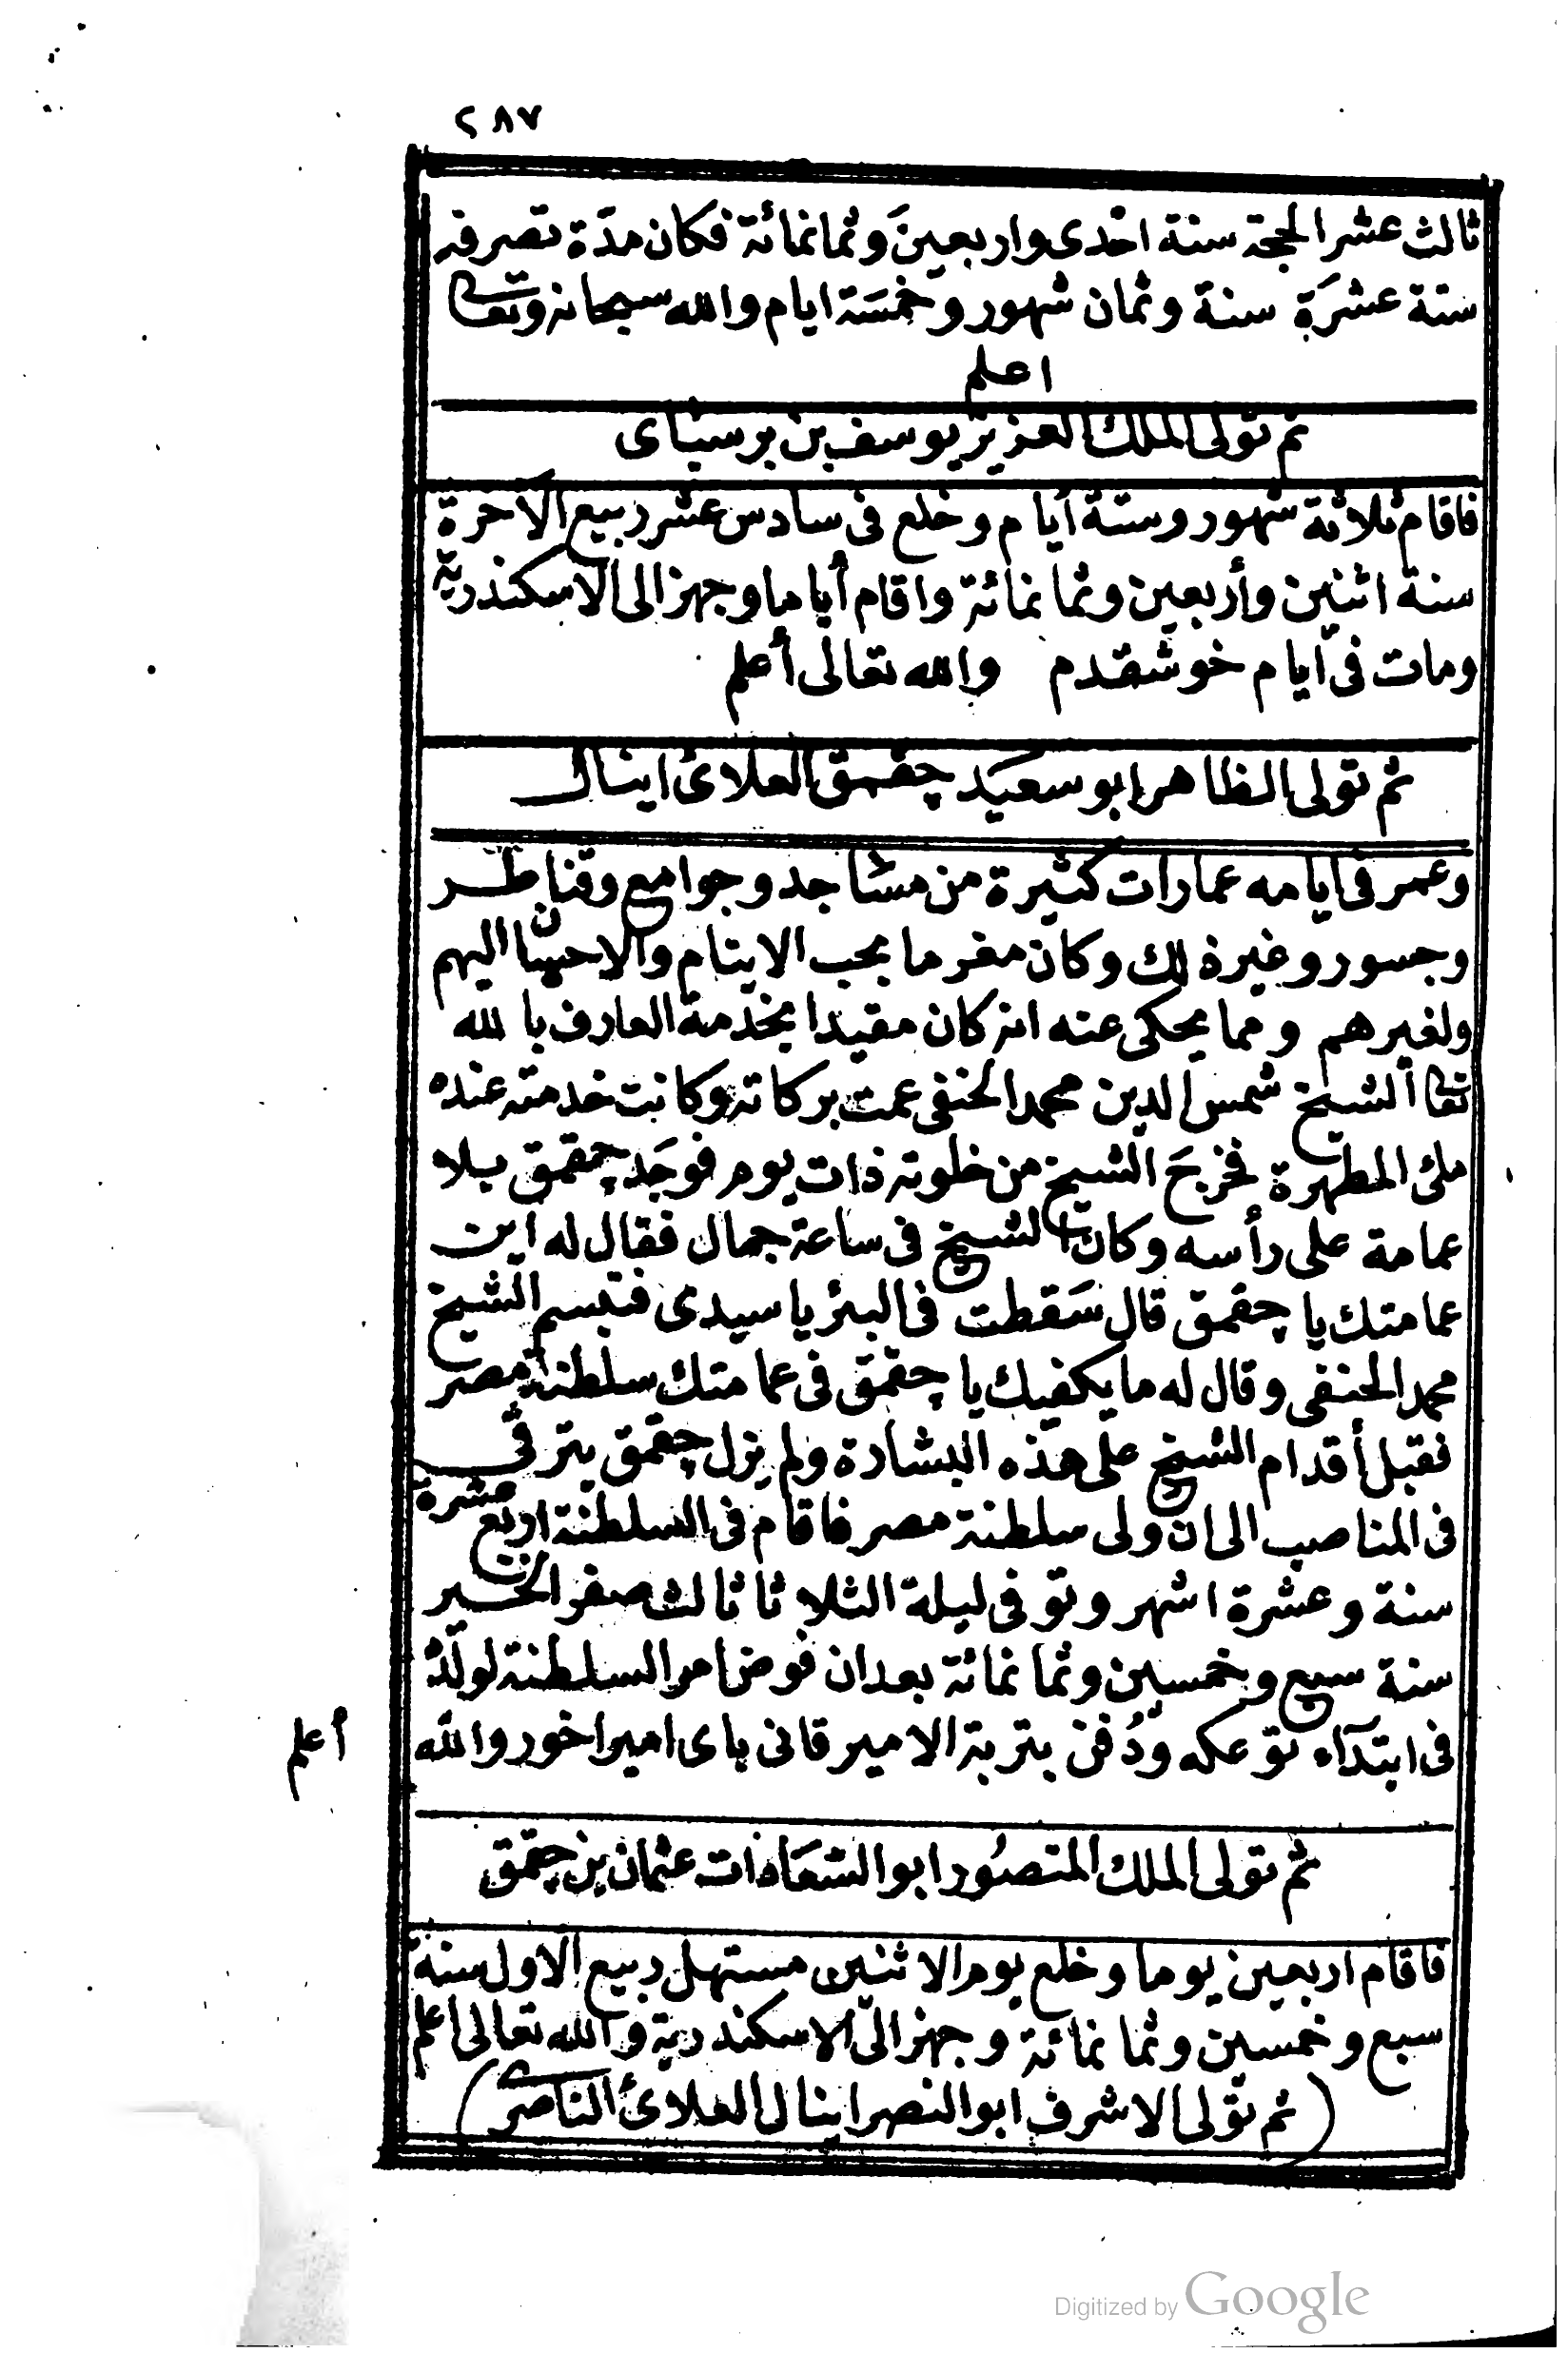 ٢٨٧
ثالث عشر الحجة سنة احدى واربعين وثمانمائة فكان مدّة تصرفه
ستة عشرة سنة وثمان شهور وخمسة ايام والله سبحانه وتعالى
اعلم
ثم تولى الملك العزيز يوسف بن برسباى
فاقام ثلاثة شهور وستة أيام وخلع فى سادس عشر ربيع الآخرة
سنة اثنين وأربعين وثمانمائة واقام أياما وجهز الى الاسكندرية
ومات فى أيام خوشقدم والله تعالى أعلم
ثم تولى الظاهر ابو سعيد چقمق العلائ اينال
وعمر فى ايامه عمارات كثيرة من مساجد وجوامع وقناطر
وجسور وغير ذلك وكان مغرما بحب الايتام والاحسان اليهم
ولغيرهم ومما يحكى عنه انه كان مقيدا بخدمة العارف بالله
تعالى الشيخ شمس الدين محمد الحنفى عمت بركاته وكانت خدمته عنده
ملئ المطهرة فخرج الشيخ من خلوته ذات يوم فوجد چقمق بلا
عمامة على رأسه وكان الشيخ فى ساعة جمال فقال له اين
عمامتك يا چقمق قال سقطت فى البئر يا سيدى فتبسم الشيخ
محمد الحنفى وقال له ما يكفيك يا چقمق فى عمامتك سلطنة مصر
فقبل أقدام الشيخ على هذه البشارة ولم يزل چقمق يترقى
فى المناصب الى ان ولى سلطنة مصر فاقام فى السلطنة اربع عشرة
سنة وعشرة اشهر وتوفى ليلة الثلاثا ثالث صفر الخير
سنة سبع وخمسين وثمانمائة بعد ان فوض امر السلطنة لولده
فى ابتدآء توعكه ودُفن بتربة الامير قانى باى امير اخور والله أعلم
ثم تولى الملك المنصور ابو السعادات عثمان بن چقمق
فاقام اربعين يوما وخلع يوم الاثنين مستهل ربيع الاول سنة
سبع وخمسين وثمانمائة وجهز الى الاسكندرية والله تعالى اعلم
(ثم تولى الاشرف ابو النصر اينال العلائ الناصرى)
Digitized by Google